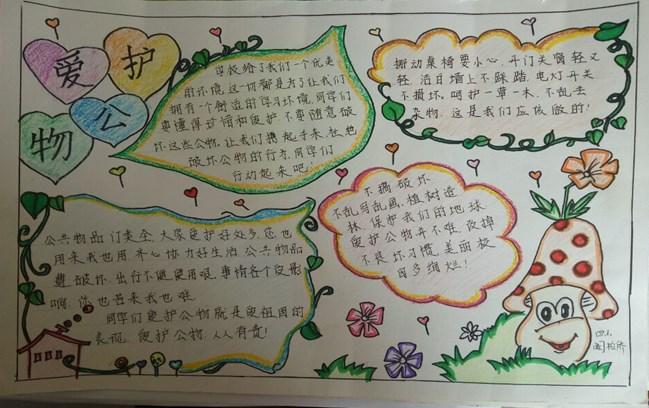 爱护
公
物
学校给了我们一个优美
的环境,这一切都是为了让我们
拥有一个舒适的学习环境,同学们
要懂得珍惜和爱护,不要随意破
坏这些公物,让我们携起手来,杜绝
破坏公物的行为,同学们
行动起来吧!
搬动桌椅要小心,开门关窗轻又
轻,洁白墙上不踩踏,电灯开关
不损坏,呵护一草一木,不乱丢
杂物,这是我们应该做的!
公共物品,门类全,大家爱护好处多,您也
用来我也用,齐心协力好生活,公共物品
遭破坏,出行不便受用艰,事情各个皮影
啊,你也苦来我也难
同学们爱护公物就是爱祖国的
表现,爱护公物,人人有责!
不搞破坏
不乱写乱画,植树造
林,保护我们的地球
爱护公物并不难,改掉
不良坏习惯,美丽校
园多绚烂!
四.1.